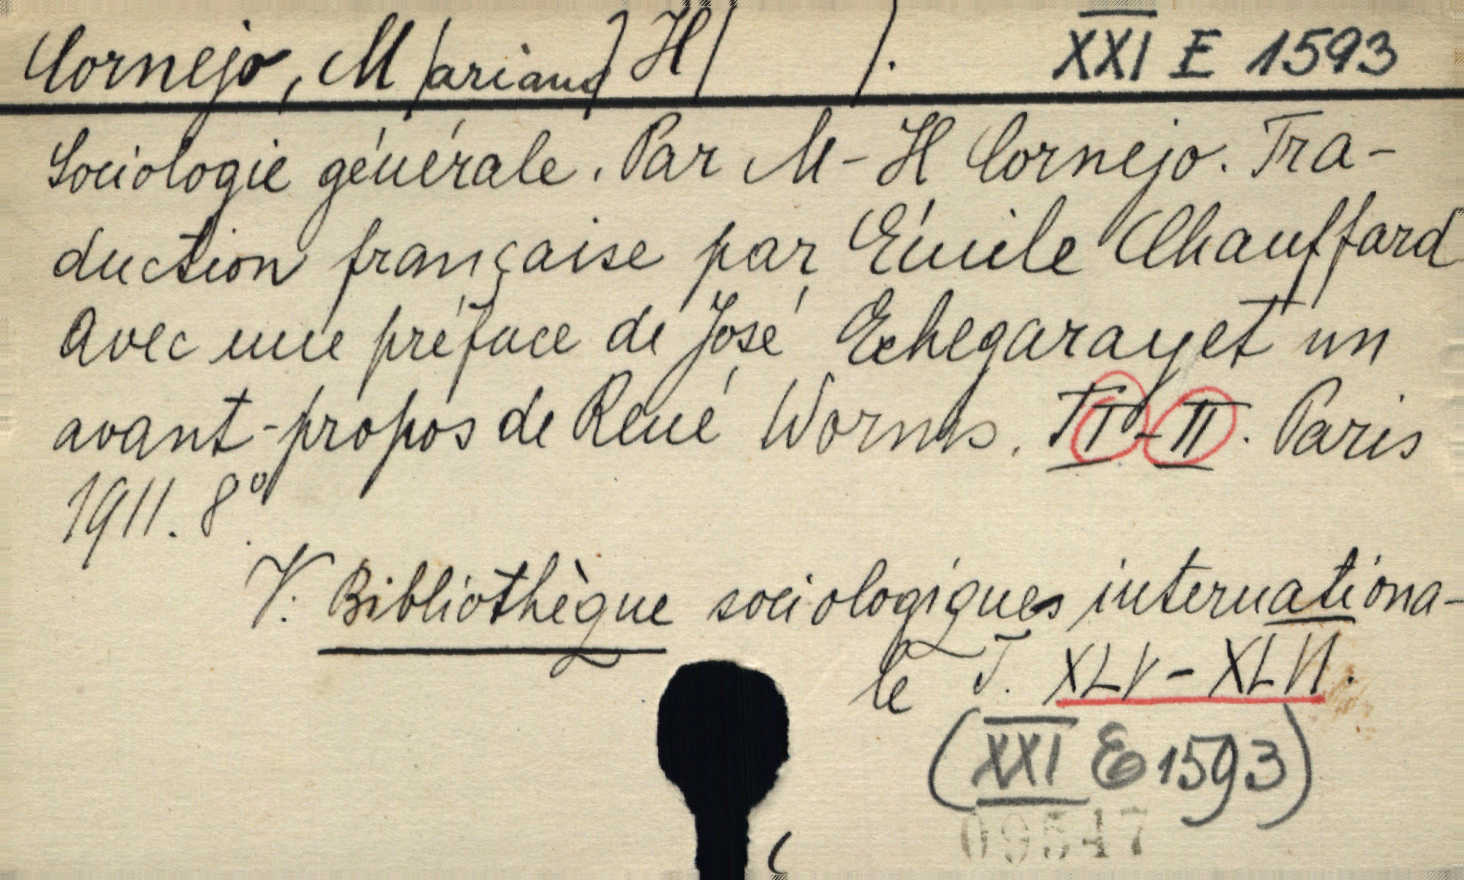 Cornejo, M/ariano/ H/ /. XXI E 1593
Sociologie générale. Par M-H Cornejo. Tra-
duction française par Émile Chauffard
Avec une préface de José Echegaray et un
avant-propos de René Worms. T I - II. Paris
1911. 8°.
V. Bibliothèque sociologiques internationa-
le T. XLV - XLVI.
(XXI E 1593)
09547